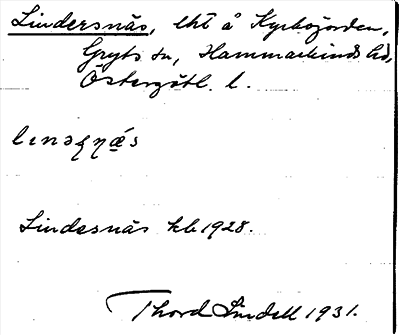 Lindersnäs, lht å Kyrbojorden,
Gryts sn, Hammarkinds hd,
Östergötl. l.
Lindesnäs kb 1928.
Thord Lindell 1931.